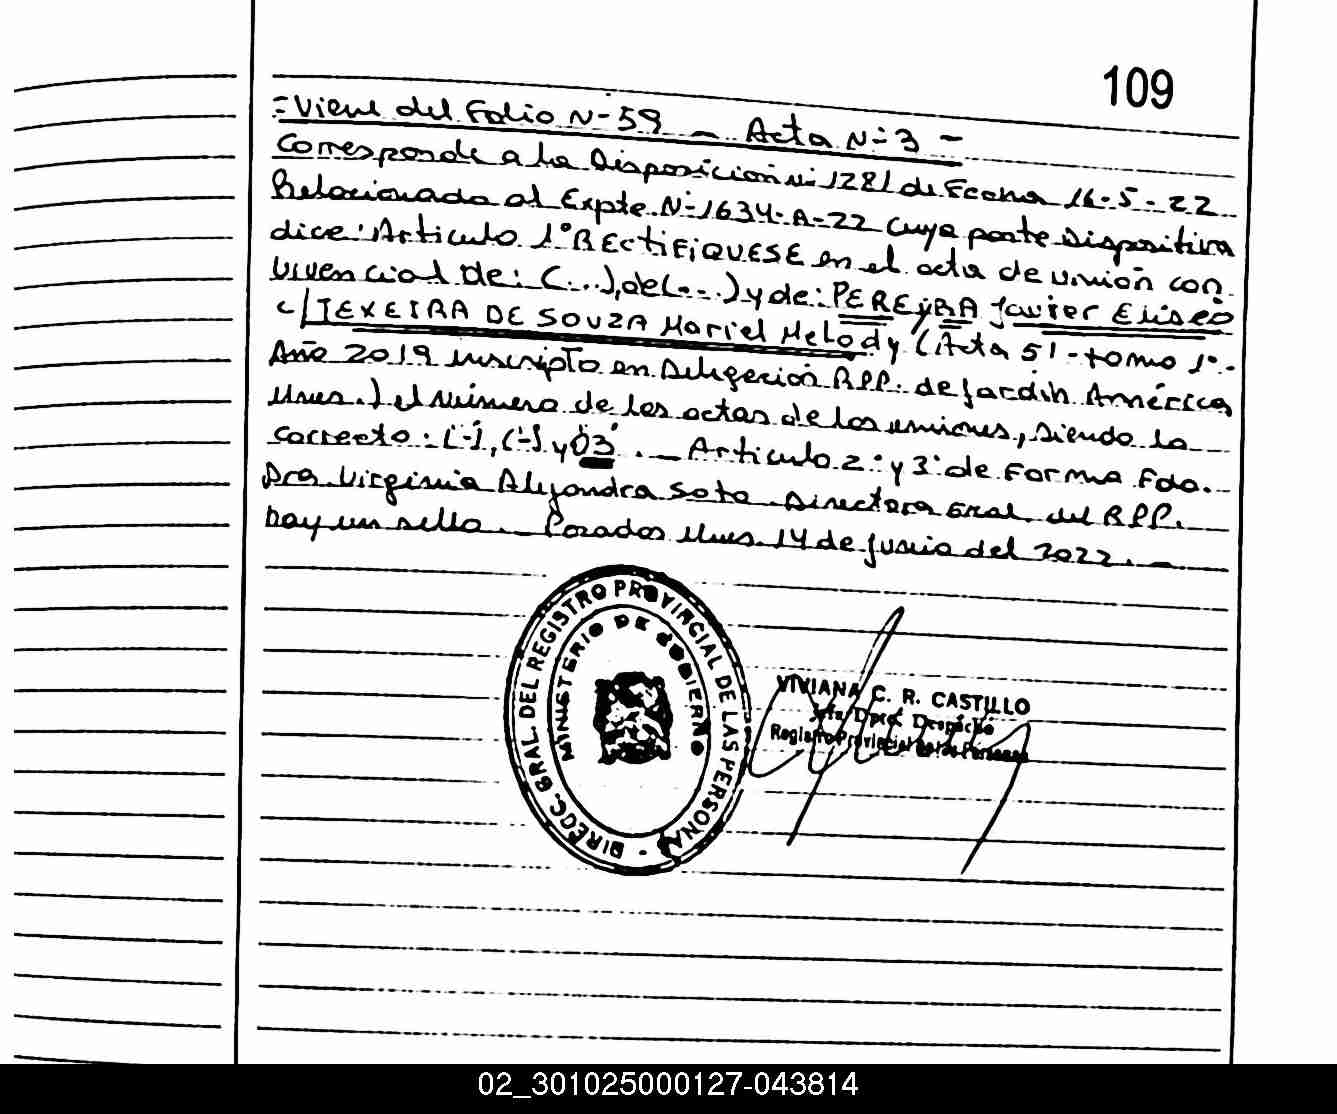 109
=Viene del Folio N-59 - Acta N-3 -
Corresponde a la Disposición N- 1281 de Fecha 16-5-22
Relacionado al Expte. N-1634-A-22 cuya parte Dispositiva
dice: Articulo 1° RECTIFIQUESE en el acta de unión con
vivencial de: (...), de (...) y de: PEREYRA Javier Eliseo
c/ TEXEIRA DE SOUZA Mariel Melody (Acta 51 - tomo 1°-
Año 2019 inscripto en Delegación RPP. de Jardín América
Mnes.) el número de las actas de las uniones, siendo lo
correcto: (-), (-) y 03. - Articulo 2° y 3° de Forma Fdo.
Dra. Virginia Alejandra Soto. Directora Gral. del RPP.
hay un sello. Posadas Mnes. 14 de junio del 2022. -
DIRECC. GRAL. DEL REGISTRO PROVINCIAL DE LAS PERSONAS -
MINISTERIO DE GOBIERNO
VIVIANA C. R. CASTILLO
Jfa. Dpto. Despacho
Registro Provincial de las Personas
02_301025000127-043814